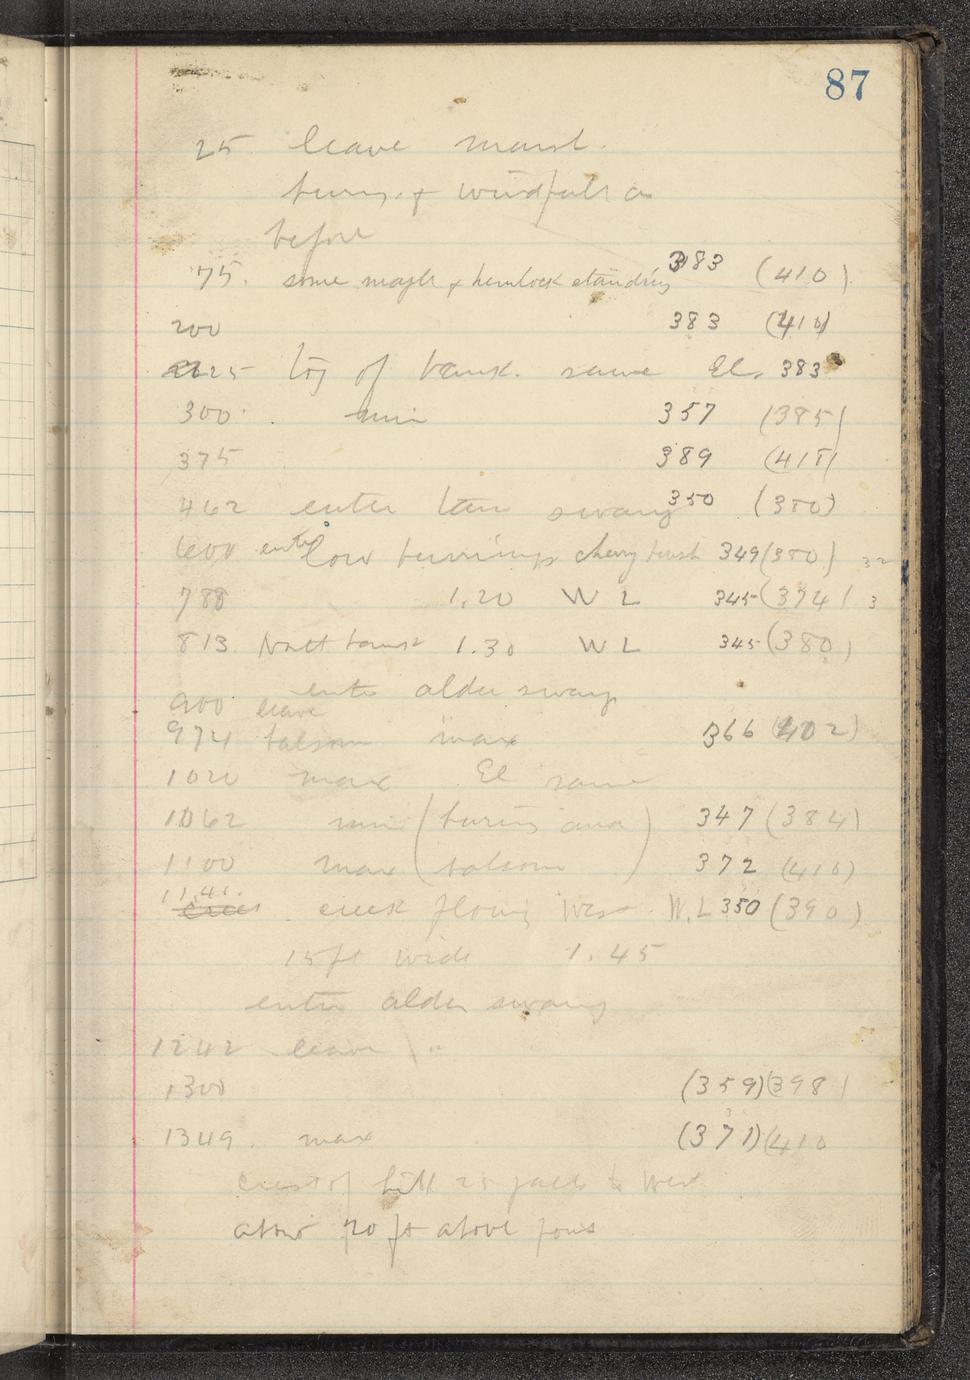 87
25 leave marsh.
burn. & windfall as
before
75. some maple & hemlock standing 383 (410)
200 383 (410)
225 top of bank. same El. 383
300. min 357 (385)
375 389 (415)
462 enter swamp 350 (380)
600 enter low burnings cherry brush 349 (380) 32
788 1.20 W L 345 (374) 3
813 North bank 1.30 W L 345 (380)
enter alder swamp
900 leave
974 balsam max 366 (402)
1020 max El same
1062 min (burnis area) 347 (384)
1100 max (balsam) 372 (410)
1141. creek flowing West. W.L 350 (390)
15 ft wide 1.45
enter alder swamp
1242 leave "
1300 (359) (398)
1349. max (371) (410
crest of hill 25 paces to West
about 20 ft above